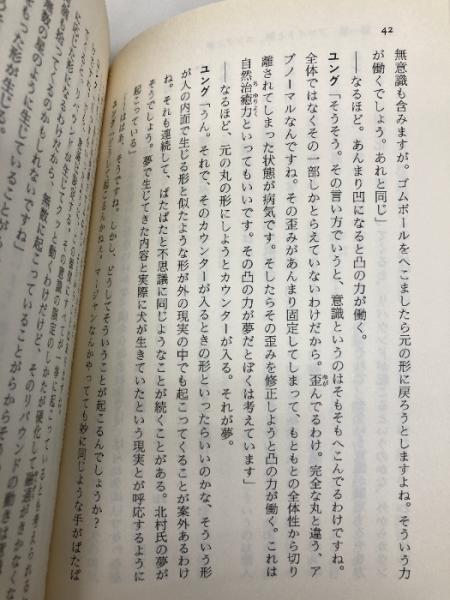 42
無意識も含みますが。ゴムボールをへこましたら元の形に戻ろうとしますよね。そういう力
が働くでしょう。あれと同じ」
——なるほど。あんまり凹になると凸の力が働く。
ユング「そうそう。その言い方でいうと、意識というのはそもそもへこんでるわけですね。
全体ではなくその一部しかとらえていないわけだから。歪んでるわけ。完全な丸と違う、ア
ブノーマルなんですね。その歪みがあんまり固定してしまって、もともとの全体性から切り
離されてしまった状態が病気です。そしたらその歪みを修正しようと凸の力が働く。これは
自然治癒力といってもいいです。その凸の力が夢だとぼくは考えています」
——なるほど、元の丸の形にしようとカウンターが入る。それが夢。
ユング「うん。それで、そのカウンターが入るときの形といったらいいのかな、そういう形
が人の内面で生じる形と似たような形が外の現実の中でも起こってくることが案外あるわけ
ね。それも連続して、ぱたぱたと不思議に同じようなことが続くことがある。北村氏の夢が
そうでしょう。夢で生じてきた内容と実際に犬が生きていたという現実とが呼応するように
起こっている」
そうですね。しかし、どうしてそういうことが起こるんでしょうか？
マージャンなんかやってても妙に同じような手がぱたぱ
と動くわけだけど、そのリバウンドの動きは
無数に起こっていることが
無数の星のように生じていることが
そもった形が生じる。